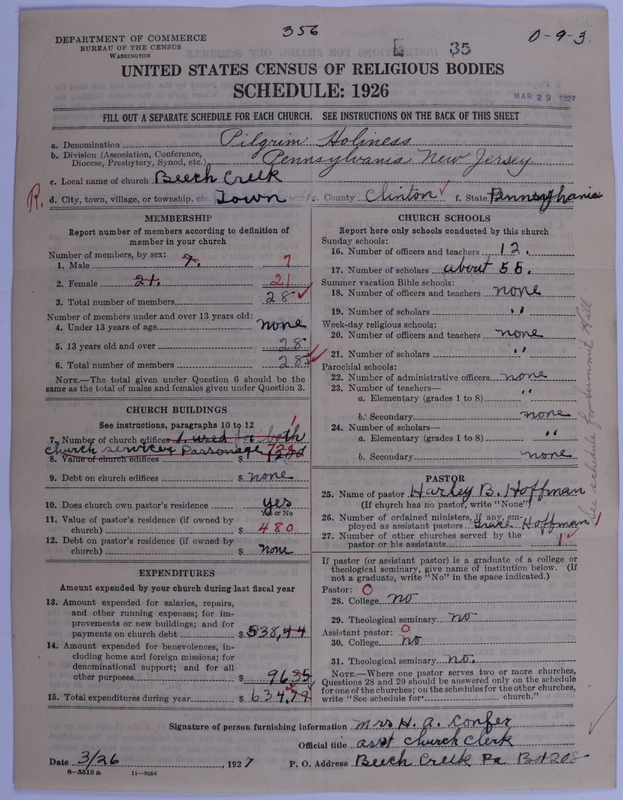 356
DEPARTMENT OF COMMERCE
BUREAU OF THE CENSUS
WASHINGTON
35
0-9-3
UNITED STATES CENSUS OF RELIGIOUS BODIES
SCHEDULE: 1926
MAR 29 1927
FILL OUT A SEPARATE SCHEDULE FOR EACH CHURCH. SEE INSTRUCTIONS ON THE BACK OF THIS SHEET
a. Denomination Pilgrim Holiness
b. Division (Association, Conference, Diocese, Presbytery, Synod, etc.) Pennsylvania New Jersey
c. Local name of church Beech Creek
R. d. City, town, village, or township, etc. Town e. County Clinton ✓ f. State Pennsylvania
MEMBERSHIP
Report number of members according to definition of
member in your church
Number of members, by sex:
1. Male 7. 7
2. Female 21. 21
3. Total number of members 28 ✓
Number of members under and over 13 years old:
4. Under 13 years of age none
5. 13 years old and over 28
6. Total number of members 28 ✓
NOTE.—The total given under Question 6 should be the
same as the total of males and females given under Question 3.
CHURCH BUILDINGS
See instructions, paragraphs 10 to 12
7. Number of church edifices 1 used for both 1
church services Parsonage 720
8. Value of church edifices $ 1200
9. Debt on church edifices $ none
10. Does church own pastor's residence yes
Yes or No
11. Value of pastor's residence (if owned by
church) $ 480
12. Debt on pastor's residence (if owned by
church) $ none
EXPENDITURES
Amount expended by your church during last fiscal year
13. Amount expended for salaries, repairs,
and other running expenses; for im-
provements or new buildings; and for
payments on church debt $ 538,44
14. Amount expended for benevolences, in-
cluding home and foreign missions; for
denominational support; and for all
other purposes $ 96 35
15. Total expenditures during year $ 634,79
CHURCH SCHOOLS
Report here only schools conducted by this church
Sunday schools:
16. Number of officers and teachers 12.
17. Number of scholars about 55.
Summer vacation Bible schools:
18. Number of officers and teachers none
19. Number of scholars "
Week-day religious schools:
20. Number of officers and teachers none
21. Number of scholars "
Parochial schools:
22. Number of administrative officers none
23. Number of teachers—
a. Elementary (grades 1 to 8) "
b. Secondary none
24. Number of scholars—
a. Elementary (grades 1 to 8) "
b. Secondary none
See schedule for Summit Hill
PASTOR
25. Name of pastor Harley B. Hoffman
(If church has no pastor, write "None")
26. Number of ordained ministers, if any, em-
ployed as assistant pastors Grace Hoffman 1
27. Number of other churches served by the
pastor or his assistants 1 ✓
If pastor (or assistant pastor) is a graduate of a college or
theological seminary, give name of institution below. (If
not a graduate, write "No" in the space indicated.)
Pastor: 0
28. College no
29. Theological seminary no
Assistant pastor: 0
30. College no
31. Theological seminary no.
NOTE.—Where one pastor serves two or more churches,
Questions 28 and 29 should be answered only on the schedule
for one of the churches; on the schedules for the other churches,
write "See schedule for church."
Signature of person furnishing information Mrs H. A. Confer
Official title ass't church clerk
Date 3/26, 1927 P. O. Address Beech Creek Pa Box 208
8—5518 a 11—9064